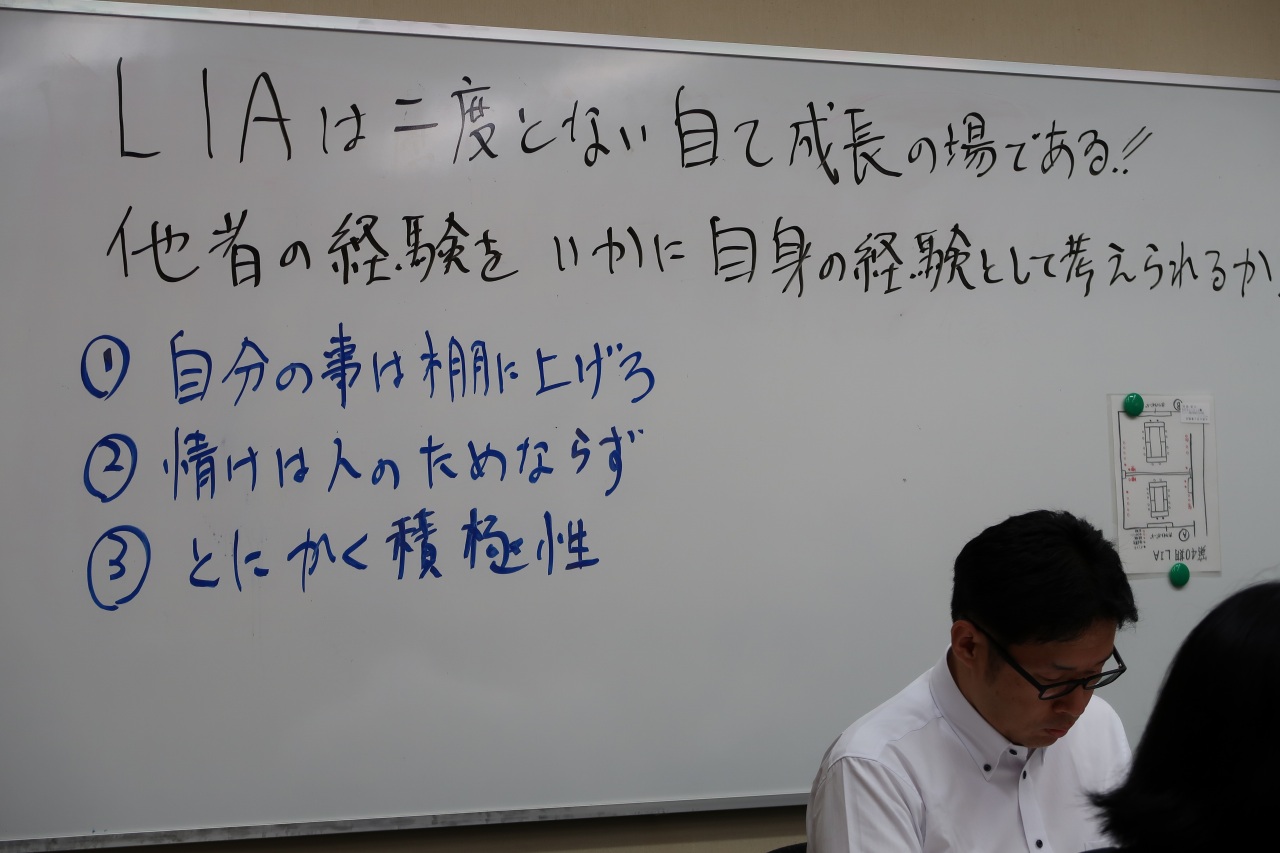 LIAは二度とない自て成長の場である!!
他者の経験を いかに自身の経験として考えられるか.
① 自分の事は棚に上げろ
② 情けは人のためならず
③ とにかく積極性
第40期 LIA